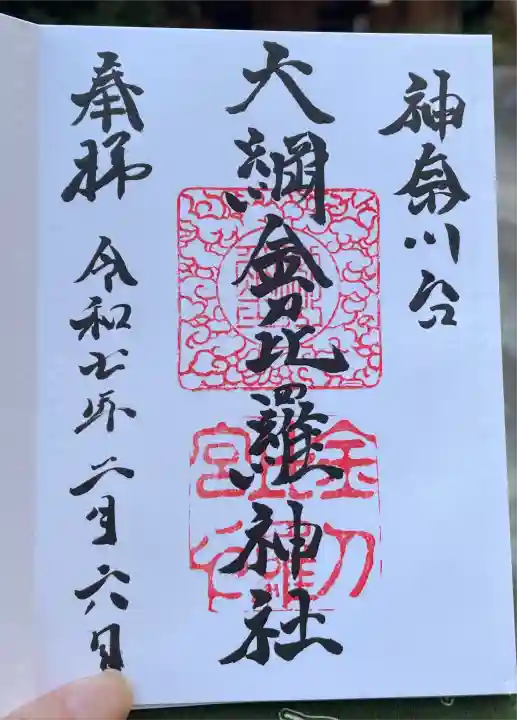 神奈川台
大綱金刀比羅神社
奉拝 令和七年二月六日
金刀比羅宮